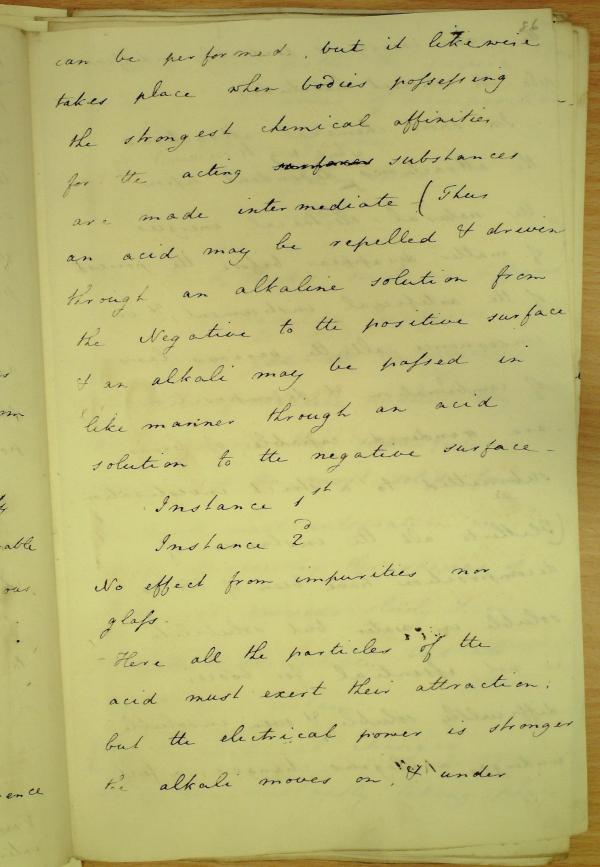 86
can be performed. but it likewise
takes place when bodies possessing
the strongest chemical affinities
for the acting surfaces substances
are made intermediate (Thus
an acid may be repelled & driven
through an alkaline solution from
the Negative to the positive surface
& an alkali may be passed in
like manner through an acid
solution to the negative surface -
Instance 1st
Instance 2d
No effect from impurities nor
glass.
Here all the particles of the
acid must exert their attraction.
but the electrical power is stronger
the alkali moves on, & under
able
our
ence